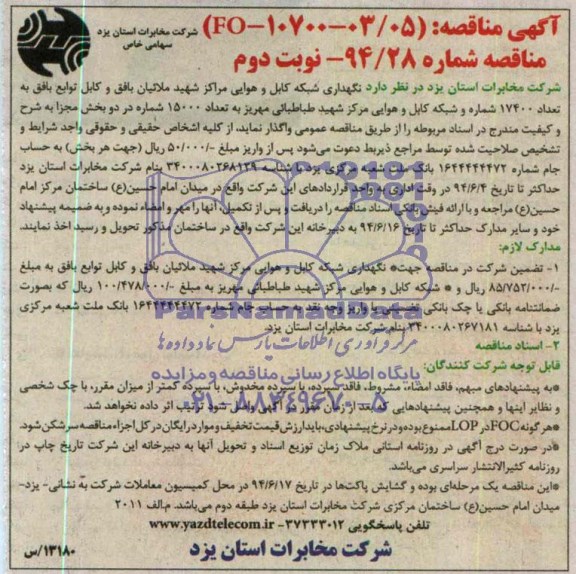 آگهی مناقصه: (FO-۱۰۷۰۰-۰۳/۰۵)
شرکت مخابرات استان یزد
سهامی خاص
مناقصه شماره ۹۴/۲۸- نوبت دوم
شرکت مخابرات استان یزد در نظر دارد نگهداری شبکه کابل و هوایی مراکز شهید ملائیان بافق و کابل توابع بافق به
تعداد ۱۷۴۰۰ شماره و شبکه کابل و هوایی مرکز شهید طباطبائی مهریز به تعداد ۱۵۰۰۰ شماره در دو بخش مجزا به شرح
و کیفیت مندرج در اسناد مربوطه را از طریق مناقصه عمومی واگذار نماید، از کلیه اشخاص حقیقی و حقوقی واجد شرایط و
تشخیص صلاحیت شده توسط مراجع ذیربط دعوت می‌شود پس از واریز مبلغ ۵۰/۰۰۰/- ریال (جهت هر بخش) به حساب
جام شماره ۱۶۴۴۴۴۴۴۷۲ بانک ملت شعبه مرکزی یزد با شناسه ۳۴۰۰۰۸۰۲۶۸۱۲۹ بنام شرکت مخابرات استان یزد
حداکثر تا تاریخ ۹۴/۶/۴ در وقت اداری به واحد قراردادهای این شرکت واقع در میدان امام حسین(ع) ساختمان مرکز امام
حسین(ع) مراجعه و با ارائه فیش بانکی اسناد مناقصه را دریافت و پس از تکمیل، آنها را مهر و امضاء نموده و به ضمیمه پیشنهاد
خود و سایر مدارک حداکثر تا تاریخ ۹۴/۶/۱۶ به دبیرخانه این شرکت واقع در ساختمان مذکور تحویل و رسید اخذ نمایند.
مدارک لازم:
۱- تضمین شرکت در مناقصه جهت* نگهداری شبکه کابل و هوایی مرکز شهید ملائیان بافق و کابل توابع بافق به مبلغ
۸۵/۷۵۲/۰۰۰/- ریال و * شبکه کابل و هوایی مرکز شهید طباطبائی مهریز به مبلغ ۱۰۰/۴۷۸/۰۰۰/- ریال که بصورت
ضمانتنامه بانکی یا چک بانکی تضمینی یا واریز وجه نقد به حساب جام شماره ۱۶۴۴۴۴۴۴۷۲ بانک ملت شعبه مرکزی
یزد با شناسه ۳۴۰۰۰۸۰۲۶۷۱۸۱ بنام شرکت مخابرات استان یزد.
۲- اسناد مناقصه
قابل توجه شرکت کنندگان:
*به پیشنهادهای مبهم، فاقد امضاء، مشروط، فاقد سپرده، با سپرده مخدوش، با سپرده کمتر از میزان مقرر، با چک شخصی
و نظایر اینها و همچنین پیشنهادهایی که بعد از زمان مقرر در آگهی واصل شود ترتیب اثر داده نخواهد شد.
*هر گونه FOC در LOP ممنوع بوده و در نرخ پیشنهادی، باید ارزش قیمت تخفیف و موارد رایگان در کل اجزاء مناقصه سرشکن شود.
*در صورت درج آگهی در روزنامه استانی ملاک زمان توزیع اسناد و تحویل آنها به دبیرخانه این شرکت تاریخ چاپ در:
روزنامه کثیرالانتشار سراسری می‌باشد.
*این مناقصه یک مرحله‌ای بوده و گشایش پاکت‌ها در تاریخ ۹۴/۶/۱۷ در محل کمیسیون معاملات شرکت به نشانی- یزد-
میدان امام حسین(ع) ساختمان مرکزی شرکت مخابرات استان یزد طبقه دوم می‌باشد. م.الف ۲۰۱۱
تلفن پاسخگویی ۳۷۲۳۳۰۱۲- www.yazdtelecom.ir
شرکت مخابرات استان یزد
۱۳۱۸۰/س
ParsNamadData
مرکز فرآوری اطلاعات پارس نماد داده‌ها
پایگاه اطلاع رسانی مناقصه و مزایده
۰۲۱-۸۸۳۴۹۶۷۰-۵